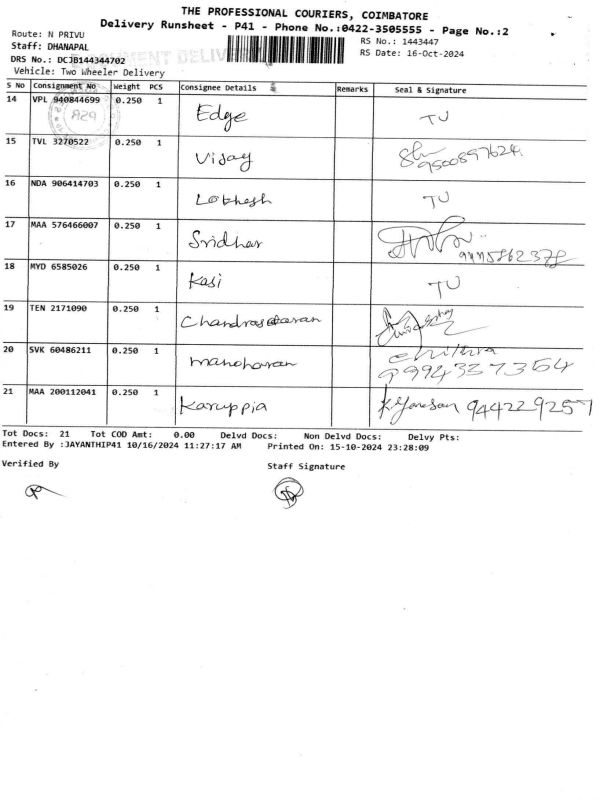 THE PROFESSIONAL COURIERS, COIMBATORE
Delivery Runsheet - P41 - Phone No.:0422-3505555 - Page No.:2
Route: N PRIVU
RS No.: 1443447
Staff: DHANAPAL
RS Date: 16-Oct-2024
DRS No.: DCJB144344702
Vehicle: Two Wheeler Delivery
S No Consignment No Weight PCS Consignee Details Remarks Seal & Signature
14 VPL 940844699 0.250 1 Edge TU
15 TVL 3270522 0.250 1 Vijay 9500897624
16 NDA 906414703 0.250 1 Lokhesh TU
17 MAA 576466007 0.250 1 Sridhar
18 MYD 6585026 0.250 1 Kasi TU
19 TEN 2171090 0.250 1 Chandrasekaran
20 SVK 60486211 0.250 1 manoharan Chithra
9994337354
21 MAA 200112041 0.250 1 Karuppia 9442292257
Tot Docs: 21 Tot COD Amt: 0.00 Delvd Docs: Non Delvd Docs: Delvy Pts:
Entered By :JAYANTHIP41 10/16/2024 11:27:17 AM Printed On: 15-10-2024 23:28:09
Verified By
Staff Signature